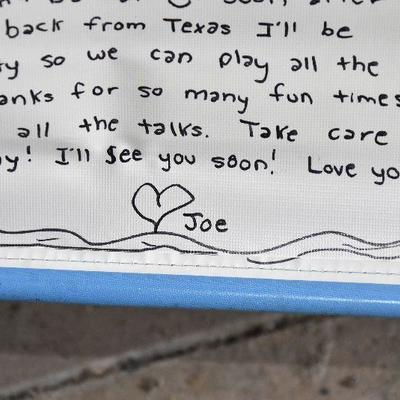 back from Texas I'll be
so we can play all the
for so many fun times
all the talks. Take care
I'll See you soon! Love
Joe